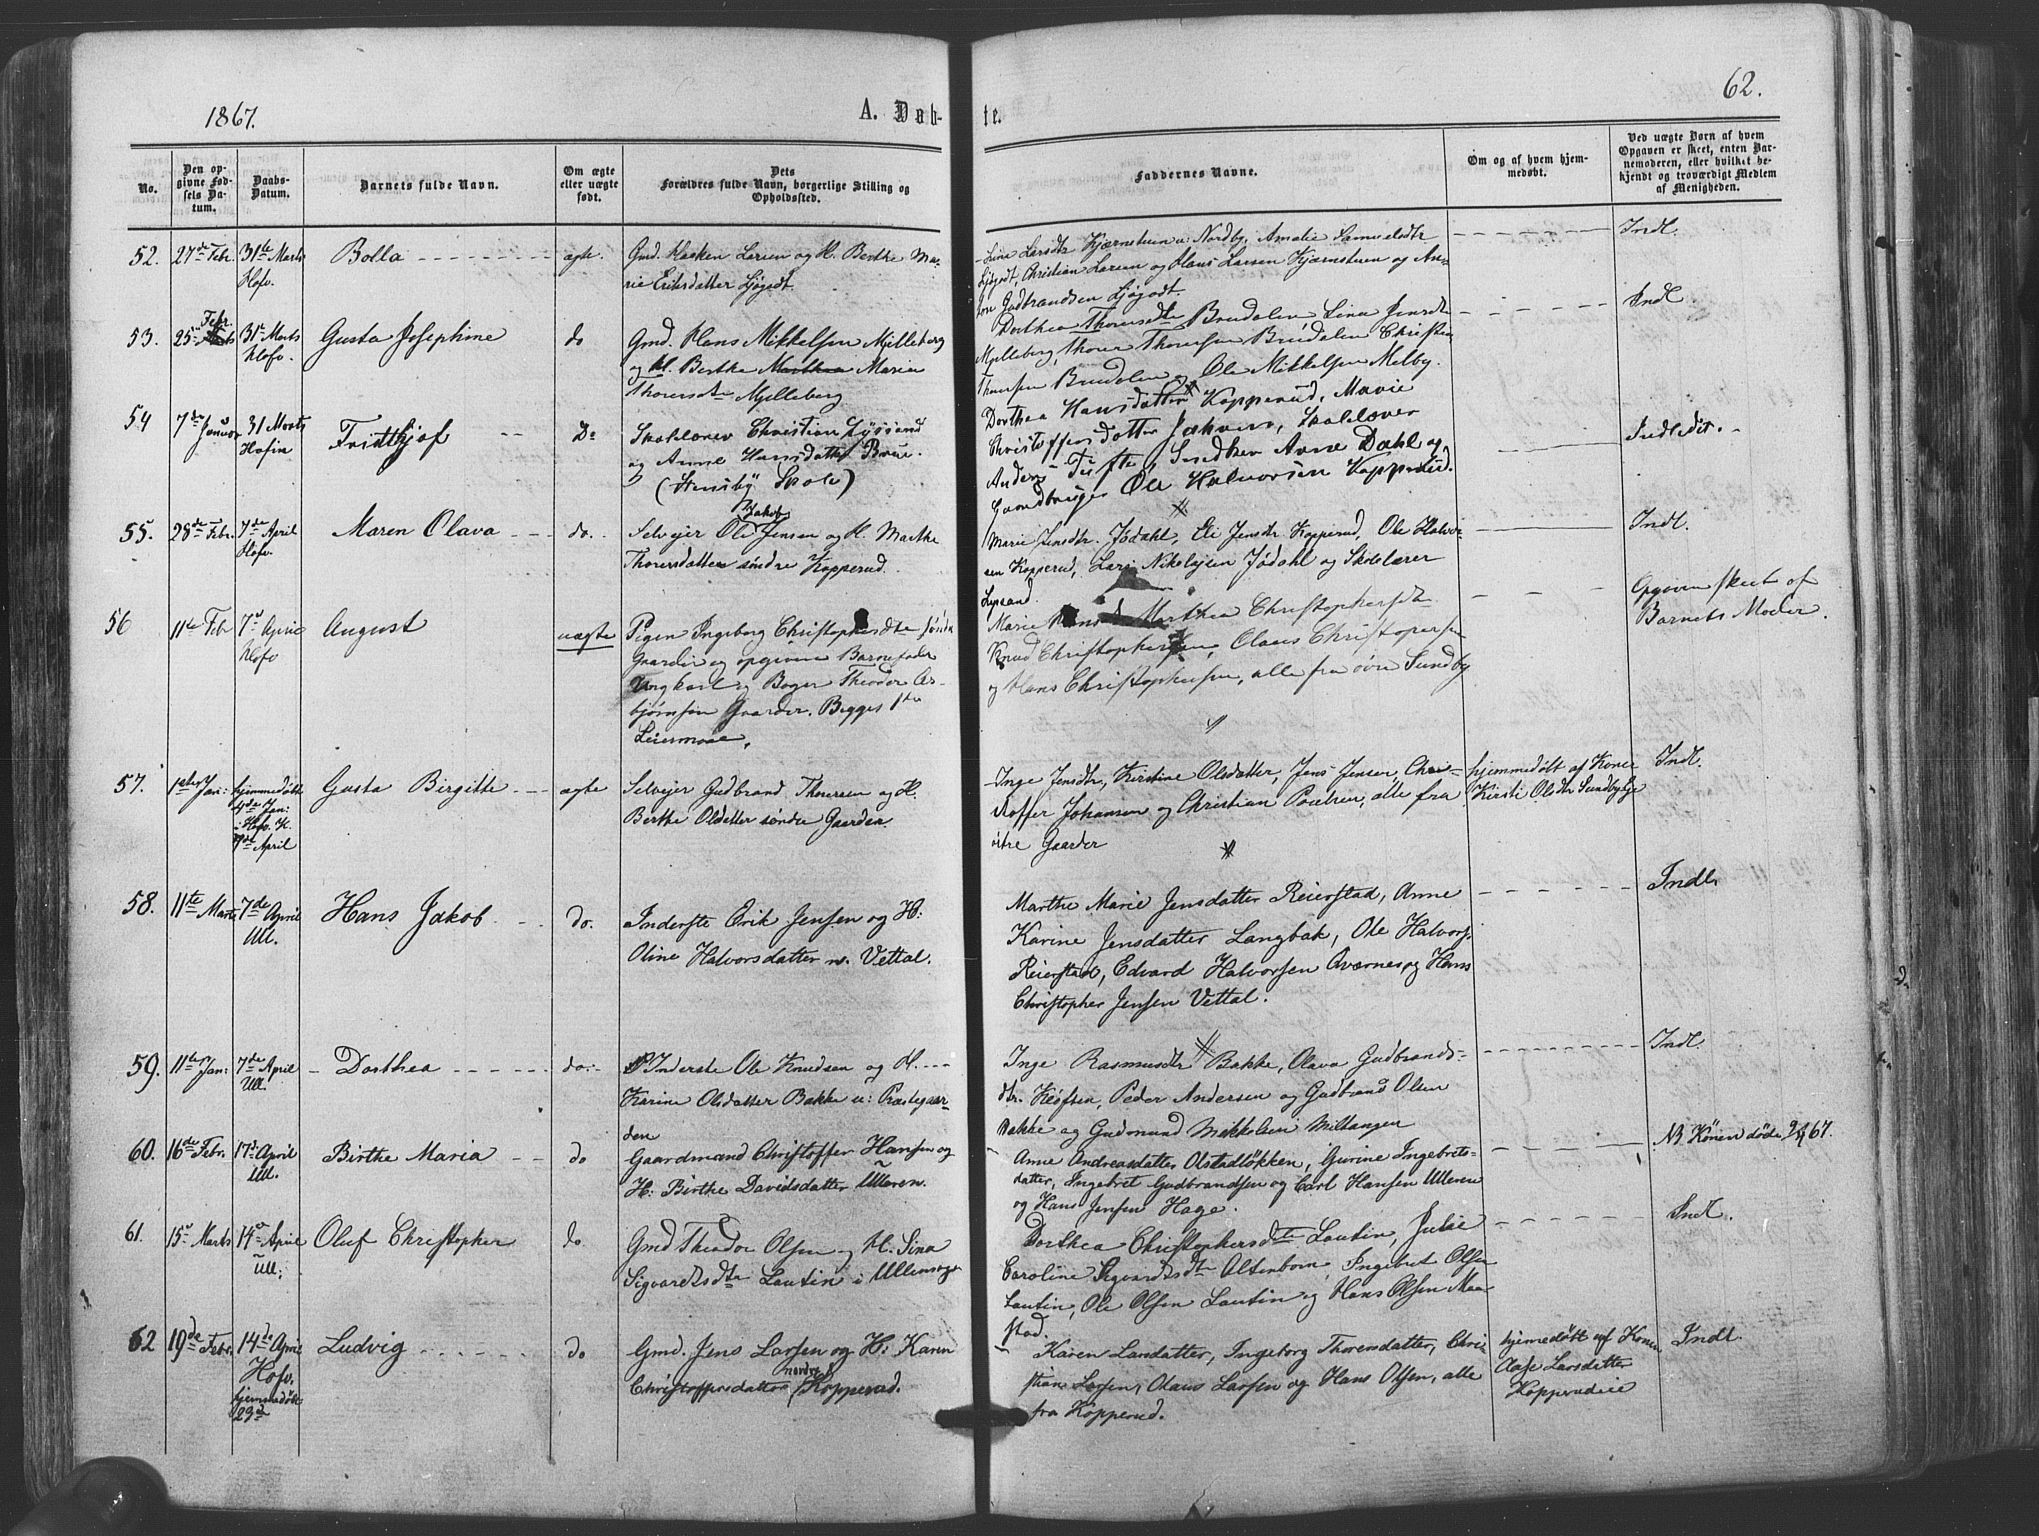 1867.
A. Døb-
te.
62.
No.
Den op-
givne Fød-
sels Da-
tum.
Daabs-
Datum.
Barnets fulde Navn.
Om ægte
eller uægte
født.
Dets
Forældres fulde Navn, borgerlige Stilling og
Opholdssted.
Faddernes Navne.
Om og af hvem hjem-
medøbt.
Ved uægte Børn af hvem
Opgaven er skeet, enten Bar-
nemoderen, eller hvilket be-
kjendt og troværdigt Medlem
af Menigheden.
52.
27de Febr.
31te Marts
Hofv.
Bolla
ægte.
Gmd. Haaken Larsen og H. Berthe Ma-
rie Eriksdatter Ljøgodt.
Line Larsdtr Kjærnstuen u: Nordby, Amalie Samuelsdtr
Ljøgodt, Christian Larsen og Hans Larsen Kjærnstuen og An-
ders Gudbrandsen Ljøgodt.
Indl.
53.
Febr
25
31te Marts
Hofv.
Gusta Josephine
do
Gmd. Hans Mikkelsen Mjelleberg
og H. Berthe Marthea Maren
Thoresdtr Mjelleberg
Dorthea Thoresdtr Brudalen Lina Jensdtr
Mjelleberg, Thorer Thoresen Brudalen Christian
Thoresen Brudalen og Ole Mikkelsen Melby.
Indl
54
7de Januar
31 Marts
Hofvin
Fridthjof
Do
Skolelærer Christian Lyssand
og Anne Hansdatter Brue.
(Hensby Skole)
Dorthea Hansdatter Kopperud, Marie
Christoffersdatter Jahren, Skolelærer
Anders Tufte, Snedker Arne Dahl og
Gaardbruger Ole Halvorsen Kopperud.
Indledet.
55.
28de Febr.
7de April
Hofv.
Maren Olava
do.
Selvejer Ole Jakob Jensen og H. Marthe
Thoresdatter søndre Kopperud.
Marie Jensdtr. Jødahl, Eli Jensdtr Kopperud, Ole Halvor-
sen Kopperud, Lars Nikolajsen Jødahl og Skolelærer
Lyssand.
Indl.
56
11te Febr
7de April
Hofv
August
uægte
Pigen Ingeborg Christophersdtr søndre
Gaarder og opgiven Barnefader
Ungkarl og Bager Theodor As-
bjørnsen Gaarder. Begges 1ste
Leiermaal.
Marie Marthea Christophersdtr
Knud Christophersen, Olaus Christophersen
og Hans Christophersen, alle fra øvre Sundby
Opgiven skeet af
Barnets Moder.
57.
1ste Jan:
hjemmedøbt
4de Jan:
i Hofv. K.
7de April
Gusta Birgitte
ægte
Selvejer Gudbrand Thoresen og H.
Berthe Olsdatter søndre Gaarder.
Inge Jensdtr, Kirstine Olsdatter, Jens Jensen, Chri-
stoffer Johansen og Christian Poulsen, alle fra
østre Gaarder
hjemmedøbt af Kone
Kirsti Olsdtr Sundbyeje
Indl.
58.
11te Marts
7de April
Ull.
Hans Jakob
do.
Inderste Erik Jensen og H:
Oline Halvorsdatter n. Vettal.
Marthe Marie Jensdatter Reierstad, Anne
Karine Jensdatter Langbak, Ole Halvors.
Reierstad, Edvard Halvorsen Aværnes og Hans
Christopher Jensen Vettal.
Indl.
59.
11te Jan:
7de April
Ull.
Dorthea
do.
Inderste Ole Knudsen og H.
Karine Olsdatter Bakke u: Præstegaar-
den
Inge Rasmusdtr Bakke, Olava Gudbrands-
dtr. Kløften, Peder Andersen og Gudbrand Olsen
Bakke og Gudmund Mikkelsen Miltangen
Indl.
60.
16de Febr.
17de April
Ull.
Birthe Maria
do
Gaardmand Christoffer Hansen og
H: Birthe Davidsdatter Ulleren.
Anne Andreasdatter Olstadløkken, Gurine Ingebrets-
datter, Ingebret Gudbrandsen og Carl Hansen Ulleren
og Hans Jensen Hage.
NB Konen døde 2/4 67.
61.
15de Marts
14de April
Ull.
Oluf Christopher
do
Gmd Theodor Olsen og H. Sina
Sigvardtsdtr Lautin i Ullensager
Dorthea Christophersdtr Lautin, Julie
Caroline Sigvardtsdtr Altenborn, Ingebret Olsen
Lautin, Ole Olsen Lautin og Hans Olsen Maar-
stad.
Indl.
62
19de Febr.
14de April
Hofv.
hjemmedøbt
23de
Ludvig
do
Gmd. Jens Larsen og H: Karen
Christoffersdatter nordre Kopperud.
Karen Larsdatter, Ingeborg Thoresdatter, Chri-
stian Larsen, Olaus Larsen og Hans Olsen, alle
fra Kopperud.
hjemedøbt af Konen
Aase Larsdatter
Kopperudeie
Indl.